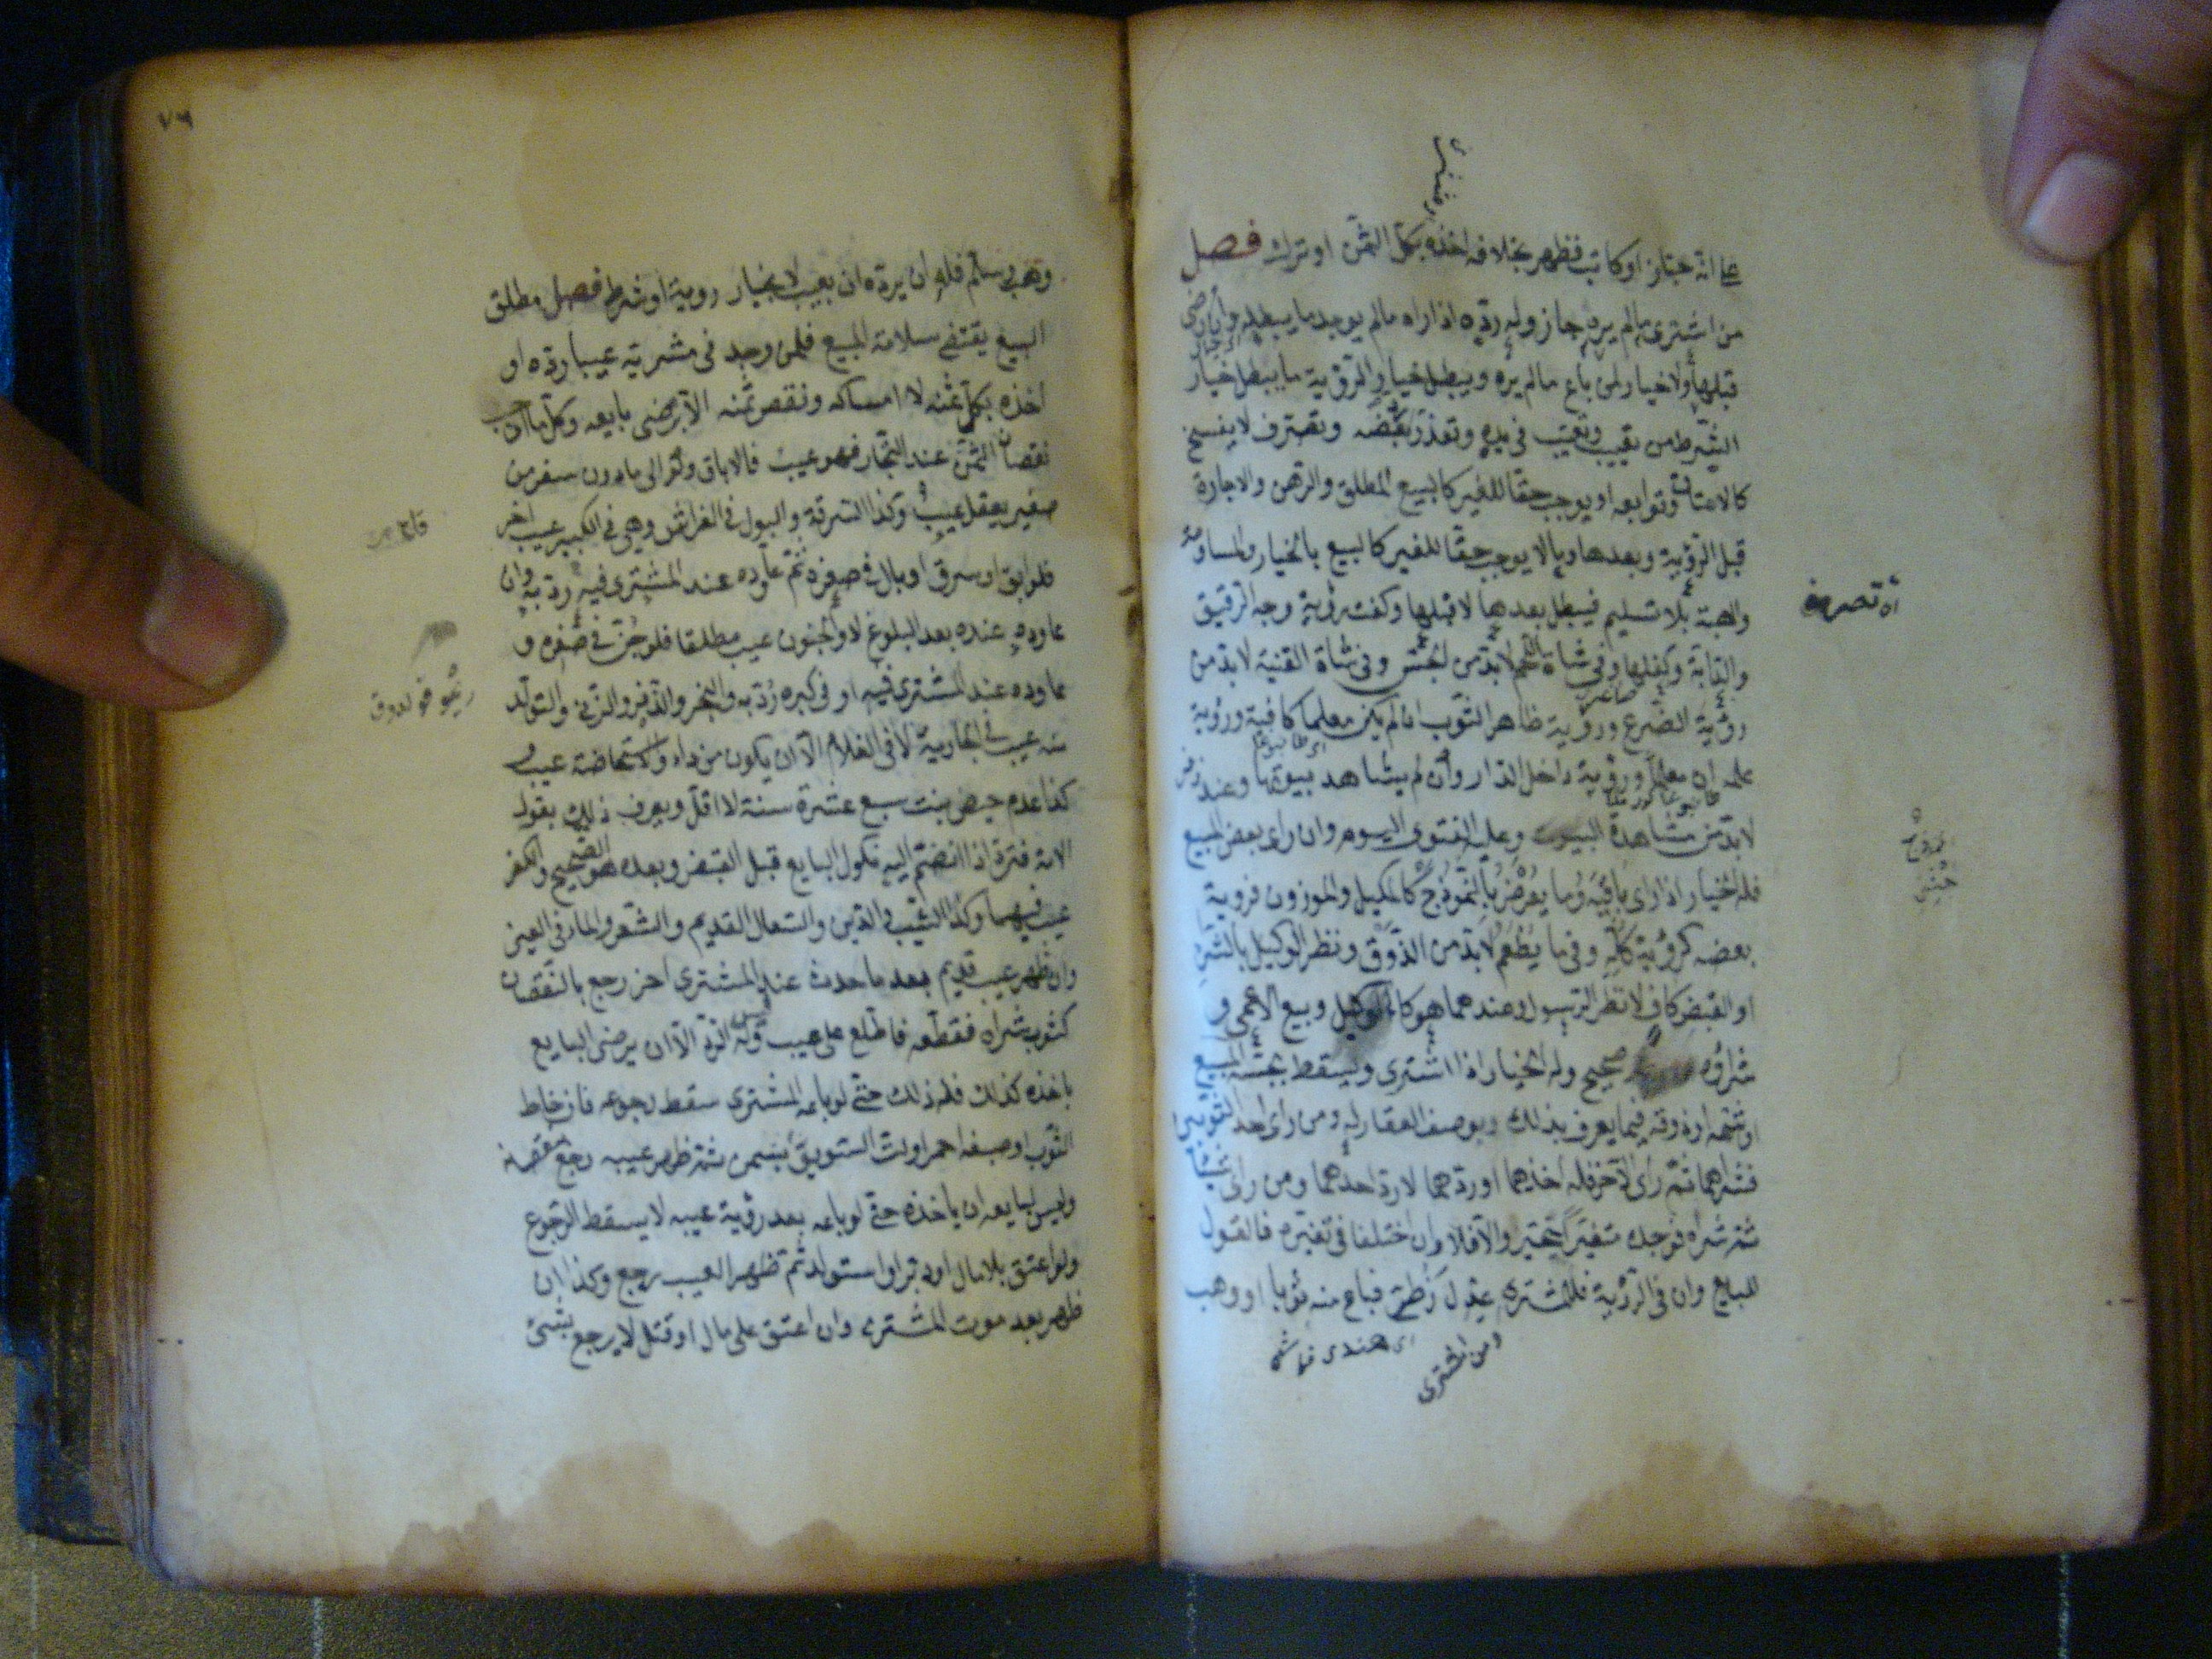 على انه خباز او كاتب فظهر بخلافه اخذه بكل الثمن او ترك فصل
من اشترى ما لم يره جاز وله رده اذا راه ما لم يوجد ما يبطله وان رضى
قبلها ولا خيار لمن باع ما لم يره ويبطل خيار الرؤية ما يبطل خيار
الشرط من تعيب في يده وتعذر بعضه وتصرف لا يفسخ
كالاعتاق وتوابعه او يوجب حقا للغير كالبيع المطلق والرهن والاجارة
قبل الرؤية وبعدها وما لا يوجب حقا للغير كالبيع بالخيار والمساومة
والهبة بلا تسليم فيبطل بعدها لا قبلها وكفت رؤية وجه الرقيق
والدابة وكفلها وفي شاة اللحم لا بد من الجس وفي شاة القنية لا بد من
رؤية الضرع ورؤية ظاهر الثوب ان لم يكن معلما كافية ورؤية
علمه ان معلما ورؤية داخل الدار وان لم يشاهد بيوتها وعند زفر
لا بد من مشاهدة البيوت وعليه الفتوى اليوم وان راى بعض المبيع
فله الخيار اذا راى باقيه وما يعرض بالنموذج كالمكيل والموزون فروية
بعضه كرؤية كله وفي ما يطعم لا بد من الذوق ونظر الوكيل بالشرى
او القبض كاف لا نظر الرسول وعندهما هو كالوكيل وبيع الاعمى و
شراؤه صحيح وله الخيار اذا اشترى ويسقط بجسه المبيع
او شمه او ذوقه فيما يعرف بذلك وبوصف العقار له ومن راى احد الثوبين
فشراهما ثم راى الآخر فله اخذهما او ردهما لا رد احدهما ومن راى شيئا
ثم شراه فوجده متغيرا تخير والا فلا وان اختلفا في تغيره فالقول
للبايع وان في الرؤية فللمشترى عدل زطى فباع منه ثوبا او وهب
ومن اشترى
اى هندى
اى تصرف
٧٦
وهب وسلم فله ان يرده ان بعيب لا بخيار روية او شرط فصل مطلق
البيع يقتضى سلامة المبيع فلمن وجد في مشريه عيبا رده او
اخذه بكل ثمنه لا امساكه ونقص ثمنه الا برضى بايعه وكل ما اوجب
نقصان الثمن عند التجار فهو عيب فالاباق ولو الى ما دون سفر من
صغير يعقل عيب وكذا السرقة والبول في الفراش وهى في الكبير عيب اخر
فلو ابق او سرق او بال في صغره ثم عاوده عند المشترى فيه رد به وان
عاوده عنده بعد البلوغ لا والجنون عيب مطلقا فلو جن في صغره و
عاوده عند المشترى فيه او في كبره رد به والبخر والذفر والزنى والتولد
منه عيب في الجارية لا في الغلام الا ان يكون من داء والاستحاضة عيب و
كذا عدم حيض بنت سبع عشرة سنة لا اقل ويعرف ذلك بقول
الامة فترد اذا انضم اليه نكول البايع قبل القبض وبعده هو الصحيح والكفر
عيب فيهما وكذا الشيب والدين والسعال القديم والشعر والماء في العين
وان ظهر عيب قديم بعد ما حدث عند المشترى اخر رجع بالنقصان
كثوب شراه فقطعه فاطلع على عيب وليس له الرد الا ان يرضى البايع
باخذه كذلك فله ذلك حتى لو باعه المشترى سقط رجوعه فان خاط
الثوب او صبغه احمر او لت السويق بسمن ثم ظهر عيبه رجع بنقصانه
وليس لبايعه ان ياخذه حتى لو باعه بعد رؤية عيبه لا يسقط الرجوع
ولو اعتق بلا مال او دبر او استولد ثم ظهر العيب رجع وكذا ان
ظهر بعد موت المشترى وان اعتق على مال او قتل لا يرجع بشئ